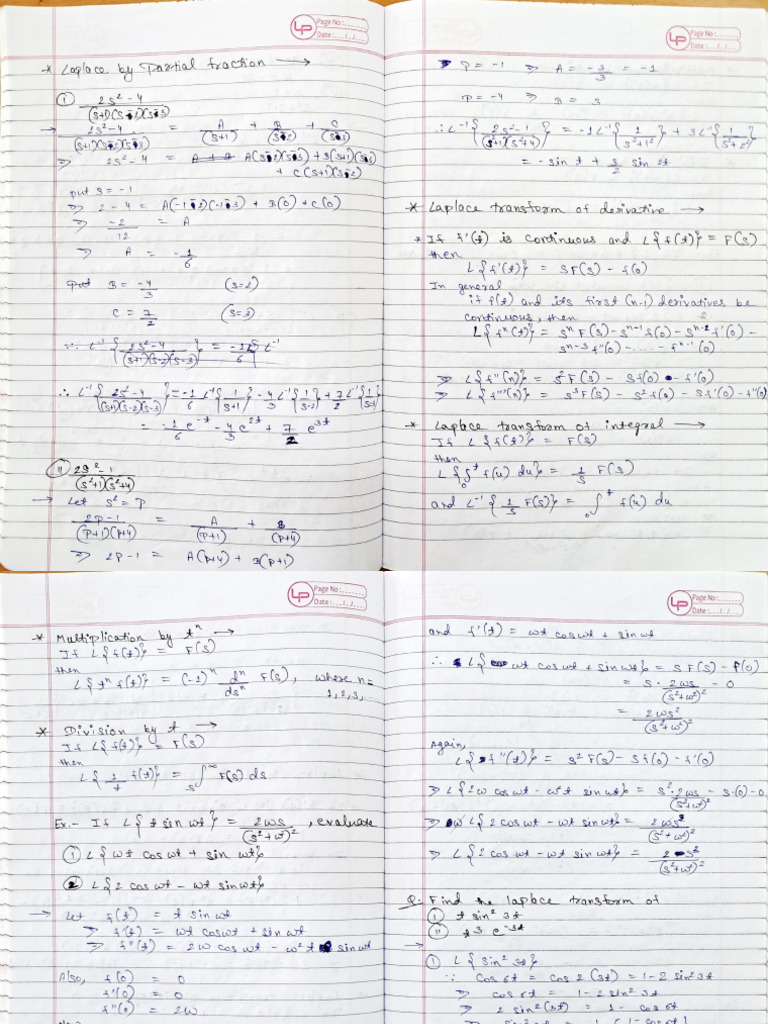 LP Page No : ......
Date : .../.../...
* Laplace by Partial fraction →
① 2s² - 4 / (s+1)(s-2)(s-3)
→ 2s² - 4 / (s+1)(s-2)(s-3) = A/(s+1) + B/(s-2) + C/(s-3)
⇒ 2s² - 4 = A(s-2)(s-3) + B(s+1)(s-3)
+ C(s+1)(s-2)
put s = -1
⇒ 2-4 = A(-1-2)(-1-3) + B(0) + C(0)
⇒ -2/12 = A
⇒ A = -1/6
put B = -4/3 (s=2)
C = 7/2 (s=3)
∵ L⁻¹{2s²-4 / (s+1)(s-2)(s-3)}
∴ L⁻¹{2s²-4 / (s+1)(s-2)(s-3)} = -1/6 L⁻¹{1/s+1} - 4/3 L⁻¹{1/s-2} + 7/2 L⁻¹{1/s-3}
= -1/6 e^-t - 4/3 e^2t + 7/2 e^3t
ⅱ 2s²-1 / (s²+1)(s²+4)
→ Let s² = p
2p-1 / (p+1)(p+4) = A/(p+1) + B/(p+4)
⇒ 2p-1 = A(p+4) + B(p+1)
LP Page No : ......
Date : .../.../...
⇒ p = -1 ⇒ A = -3/3 = -1
p = -4 ⇒ B = 3
∴ L⁻¹{2s²-1 / (s²+1)(s²+4)} = -1 L⁻¹{1/s²+1²} + 3L⁻¹{1/s²+2²}
= - sin t + 3/2 sin 2t
* Laplace transform of derivative →
* If f'(t) is continuous and L{f(t)} = F(s)
then
L{f'(t)} = SF(s) - f(0)
In general
if f(t) and its first (n-1) derivatives be
continuous, then
L{fⁿ(t)} = sⁿ F(s) - sⁿ⁻¹ f(0) - sⁿ⁻² f'(0) -
sⁿ⁻³ f''(0) - ..... - fⁿ⁻¹(0)
⇒ L{f''(n)} = s²F(s) - sf(0) - f'(0)
⇒ L{f'''(n)} = s³F(s) - s²f(0) - sf'(0) - f''(0)
* Laplace transform of integral →
If L{f(t)} = F(s)
then
L{∫₀ᵗ f(u) du} = 1/s F(s)
and L⁻¹{1/s F(s)} = ∫₀ᵗ f(u) du
LP Page No : ......
Date : .../.../...
* Multiplication by tⁿ →
If L{f(t)} = F(s)
then
L{tⁿ f(t)} = (-1)ⁿ dⁿ/dsⁿ F(s), where n =
1,2,3,..
* Division by t →
If L{f(t)} = F(s)
then
L{1/t f(t)} = ∫ₛ^∞ F(s) ds
Ex.- If L{t sin wt} = 2ws/(s²+w²)², evaluate
① L{wt cos wt + sin wt}
② L{2 cos wt - wt sin wt}
→ Let f(t) = t sin wt
⇒ f'(t) = wt cos wt + sin wt
⇒ f''(t) = 2w cos wt - w² t sin wt
Also, f(0) = 0
f'(0) = 0
f''(0) = 2w
LP Page No : ......
Date : .../.../...
and f'(t) = wt cos wt + sin wt
∴ L{wt cos wt + sin wt} = s F(s) - f(0)
= s · 2ws/(s²+w²)² - 0
= 2ws²/(s²+w²)²
Again,
L{f''(t)} = s² F(s) - sf(0) - f'(0)
⇒ L{2w cos wt - w²t sin wt} = s² · 2ws/(s²+w²)² - s·(0) - 0
⇒ w L{2 cos wt - wt sin wt} = 2ws³/(s²+w²)²
⇒ L{2 cos wt - wt sin wt} = 2s³/(s²+w²)²
Q. Find the laplace transform of
ⅰ t sin² 3t
ⅱ t³ e^-3t
→
① L{sin² 3t}
∵ cos 6t = cos 2(3t) = 1-2 sin² 3t
⇒ cos 6t = 1-2 sin² 3t
⇒ 2 sin²(3t) = 1- cos 6t